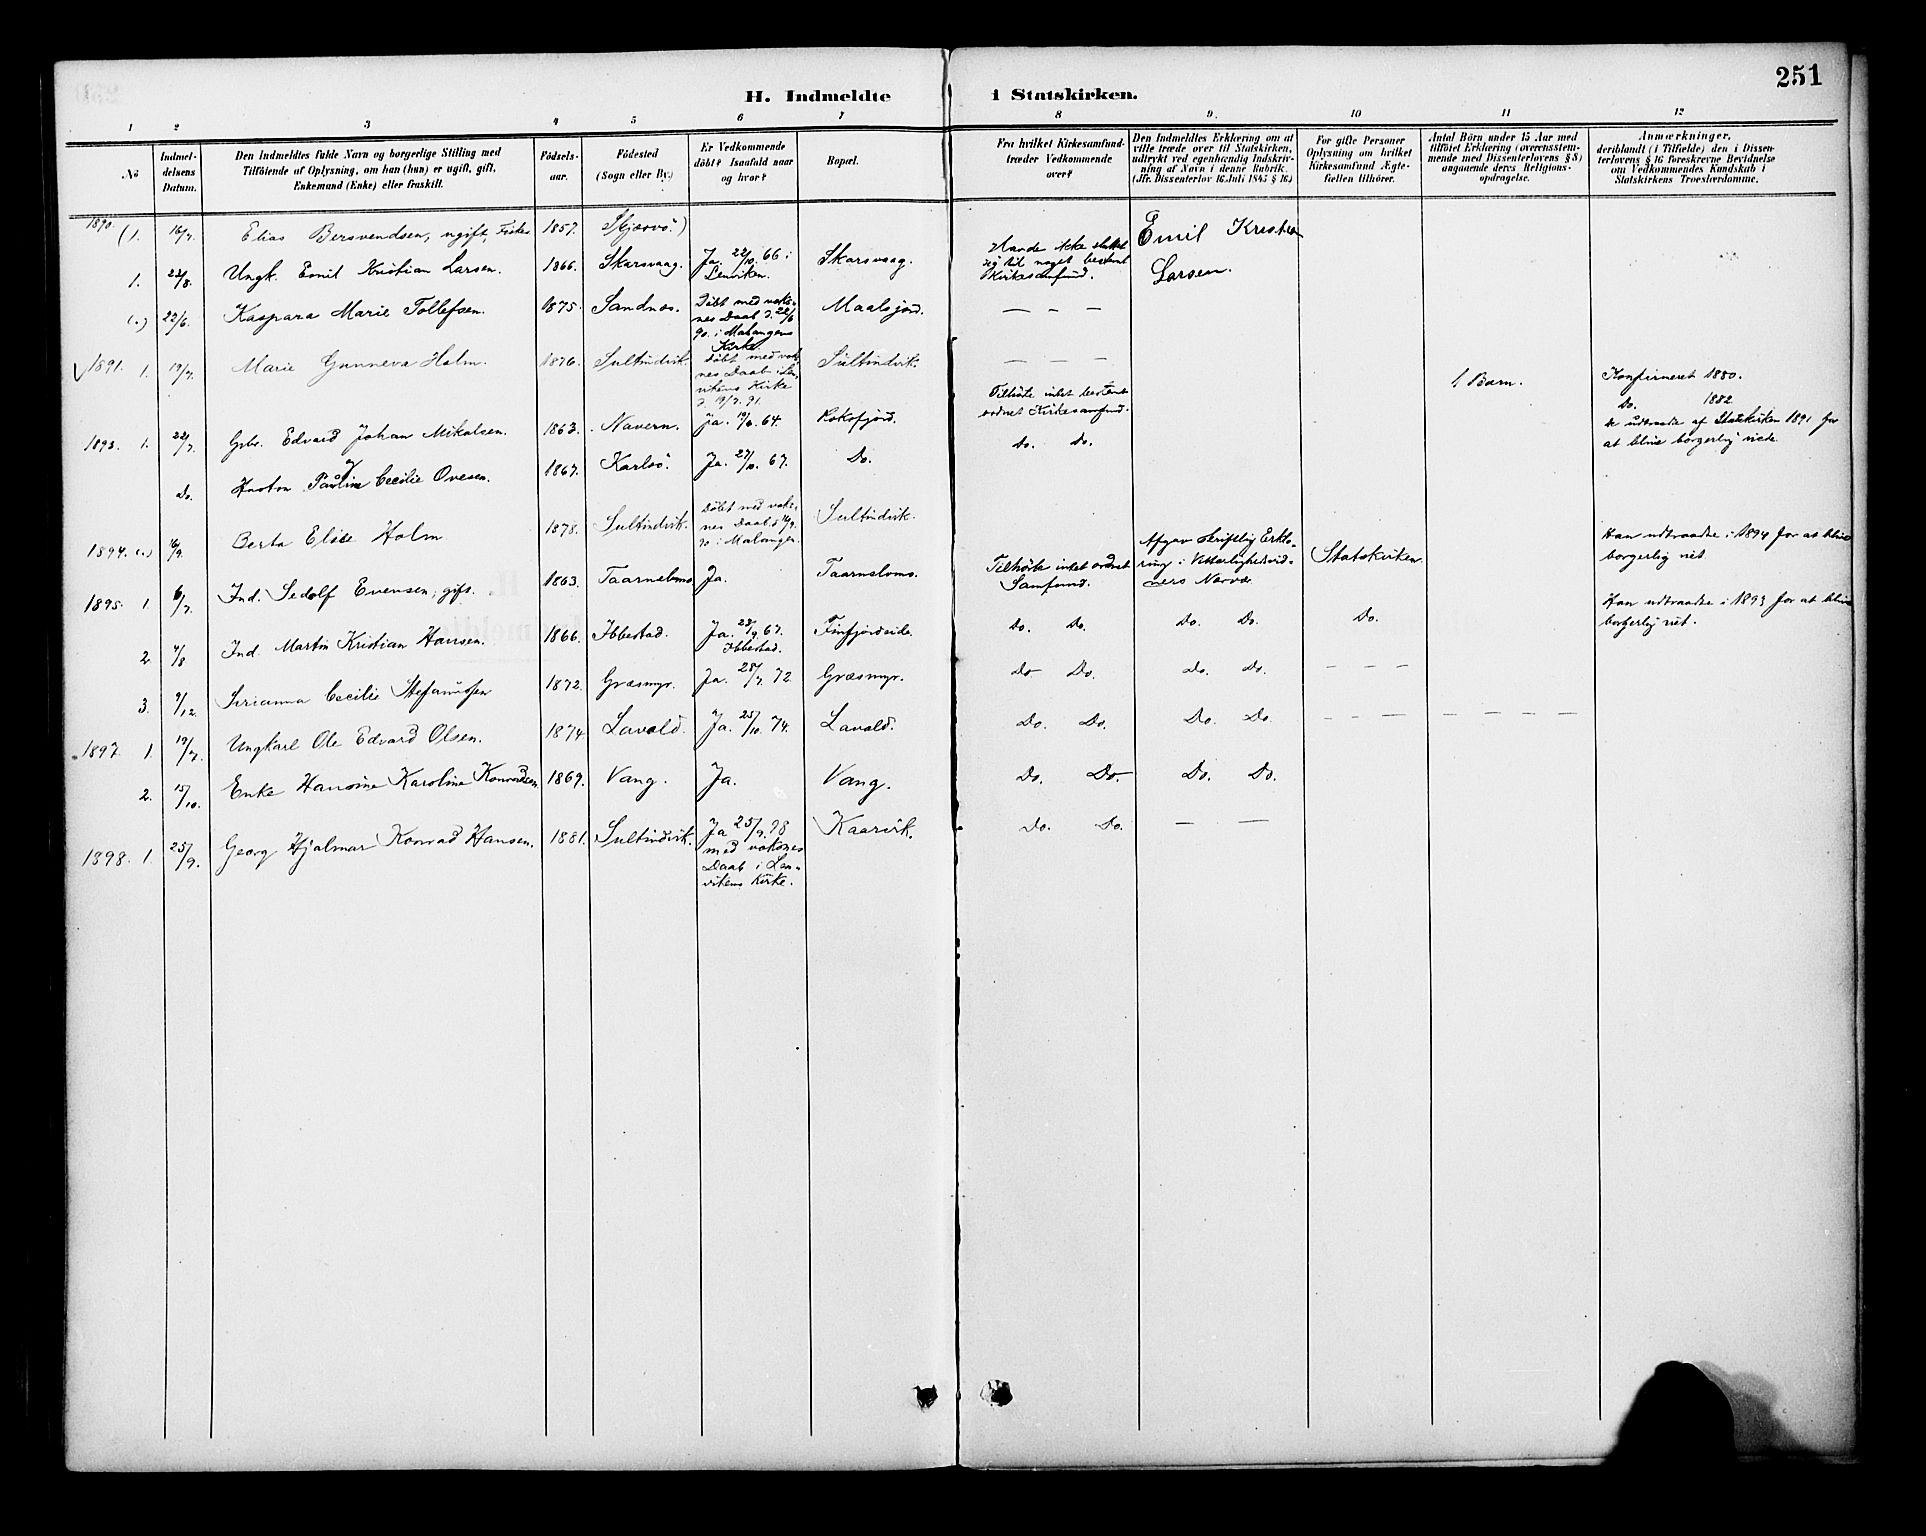 251
H. Indmeldte i Statskirken.
1 2 3 4 5 6 7 8 9. 10 11 12
No
Indmeldelsens Datum.
Den Indmeldtes fulde Navn og borgerlige Stilling med
Tilföiende af Oplysning, om han (hun) er ugift, gift,
Enkemand (Enke) eller fraskilt.
Födselsaar.
Födested
(Sogn eller By.)
Er Vedkommende
döbt? Isaafald naar
og hvor?
Bopæl.
Fra hvilket Kirkesamfund
træder Vedkommende
over?
Den Indmeldtes Erklæring om at
ville træde over til Statskirken,
udtrykt ved egenhændig Indskrivning af Navn i denne Rubrik.
(Jfr. Dissenterlov 16 Juli 1845 § 16.)
For gifte Personer
Oplysning om hvilket
Kirkesamfund Ægtefællen tilhörer.
Antal Börn under 15 Aar med
tilföiet Erklæring (overensstemmende med Dissenterlovens § 8)
angaaende deres Religionsopdragelse.
Anmærkninger,
deriblandt (i Tilfælde) den i Dissenterlovens § 16 foreskrevne Bevidnelse
om Vedkommendes Kundskab i
Statskirkens Troeslærdomme.
1890. (1. 16/7. Elias Bersvendsen, ugift, Fisker 1857. Skjærvö.)
1. 22/8. Ungk. Emil Kristian Larsen. 1866. Skarsvaag. Ja. 22/10. 66 i Lenviken. Skarsvaag. Havde ikke sluttet sig til noget bestemt Kirkesamfund. Emil Kristian Larsen.
(.) 22/6. Kaspara Marie Tollefsen. 1875. Sandnes. Döbt med voksnes Daab d. 22/6 90. i Malangens Kirke. Maalsjord. — — —
1891. 1. 19/7. Marie Gunneva Holm. 1876. Sultindvik. Döbt med voksnes Daab i Lenvikens Kirke d. 19/7. 91. Sultindvik. — — —
1893. 1. 22/7. Gbr. Edvard Johan Mikalsen. 1863. Navern. Ja. 64. Roksfjord. Tilhörte intet bestemt ordnet Kirkesamfund. 1 Barn. Konfirmeret 1880.
Do. Hustru Pauline Cecilie Ovesen. 1867. Karlsö. Ja. 27/10. 67. Do. Do. Do. Do. 1882.
udtraadte af Statskirken 1891 for
at blive borgerlig viede.
1894. (.) 16/9. Berta Elise Holm 1878. Sultindvik. Döbt med voksnes Daab d. 16/9. 90 i Malangen. Sultindvik.
1895. 1. 6/7. Ind. Sedolf Evensen, gift. 1863. Taarnelvmo Ja. Taarnelvmo. Tilhörte intet ordnet Samfund. Afgav skriftlig Erklæring i Vitterlighedsvidners Nærvær Statskirken Han udtraadte i 1894 for at blive
borgerlig viet.
2. 4/8 Ind. Martin Kristian Hansen. 1866. Ibbestad. Ja. 22/9. 67. Ibbestad. Finfjordeide. Do. Do. Do. Do. Do. Han udtraadte i 1893 for at blive
borgerlig viet.
3. 9/12. Sirianna Cecilie Stefanussen 1872. Græsmyr. Ja. 28/7. 72. Græsmyr. Do Do. Do. Do. — — —
1897. 1 19/7. Ungkarl Ole Edvard Olsen. 1874 Lavold. Ja. 25/10. 74. Lavold. Do. Do. Do. Do. — — — — — — —
2. 15/10. Enke Hansine Karoline Konradsen 1869. Vang. Ja. Vang. Do. Do. Do. Do.
1898. 1. 25/9. Georg Hjalmar Konrad Hansen. 1881. Sultindvik. Ja 25/9. 98 med voksnes Daab i Lenvikens Kirke. Kaarvik. Do. Do. — —